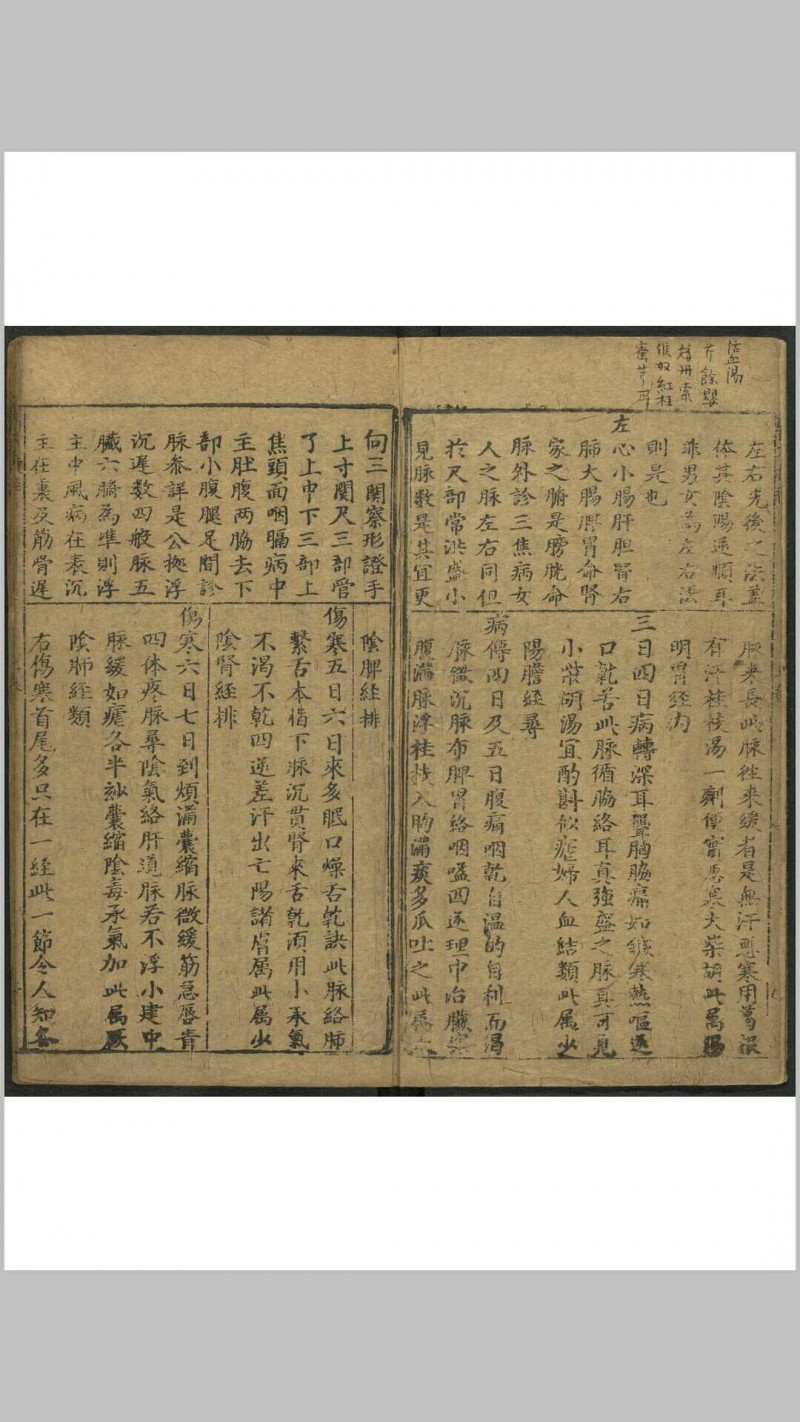 左右先後之法蓋
体其陰陽逆順耳
乖男女為左右法
則是也
左心小腸肝胆腎右
肺大腸脾胃命腎
家之腑是膀胱命
脉外診三焦病女
人之脉左右同但
於尺部常洪盛小
見脉数是其宜更
脉来長此脉往来緩者是無汗惡寒用葛根
有汗桂枝湯一劑便實惡寒大柴胡此属陽
明胃経内
三日四日病轉深耳聾胸脇痛如鍼寒熱嘔逆
口乾苦此脉循脇絡耳真強盛之脉耳可見
小柴胡湯宜酌斟似瘧婦人血結類此属少
陽膽経尋
病傳四日及五日腹痛咽乾自温的自利而渴
脉微沉脉布脾胃絡咽嗌四逐理中治臓寒
腹滿脉浮桂枝入胸滿痰多瓜吐之此属太
向三関察形證手
上寸関尺三部管
了上中下三部上
焦頭面咽膈病中
主肚腹两脇去下
部小腹腿足間診
脉叅詳是公拠浮
沉遲数四般脉五
臓六腑為準則浮
主中風病在表沉
主在裏及筋骨遲
陰脾経排
傷寒五日六日来多眠口燥舌乾訣此脉絡肺
繋舌本借下脉沉贯腎来舌乾湏用小承氣
不渴不乾四逆差汗出亡陽諸膚属此属少
陰腎経排
傷寒六日七日到煩滿囊縮脉微緩筋急唇青
四体疼脉尋陰氣絡肝道脉若不浮小建中
脉緩如瘧各半紗囊縮陰毒承氣加此属厥
陰肺経類
右傷寒首尾多只在一経此一節令人知各